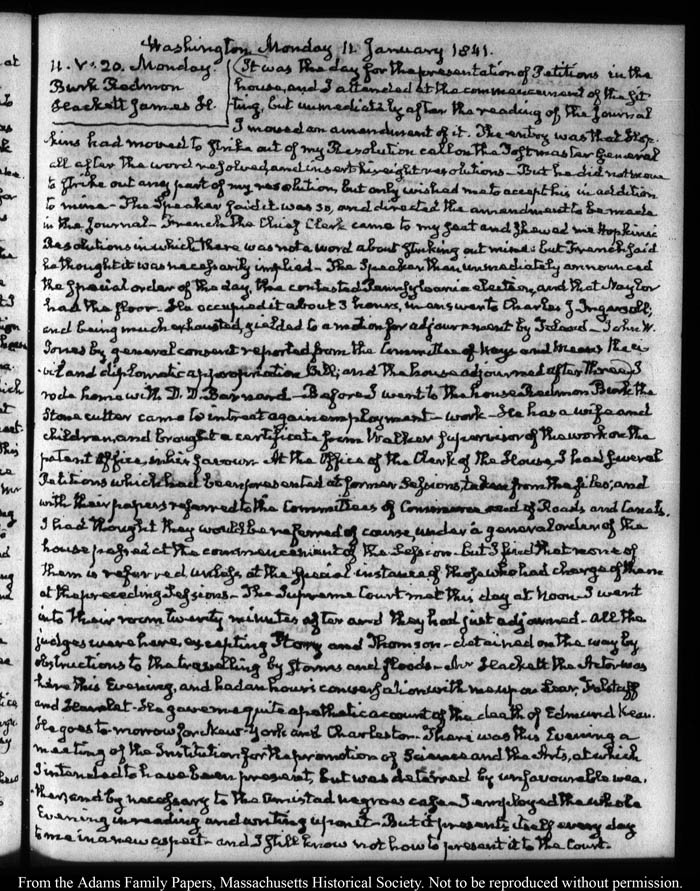 Washington Monday 11 January 1841.
11. V:20. Monday.
Burk Redmon
Hackett James H.
It was the day for the presentation of Petitions in the
house, and I attended at the commencement of the sit-
ting, but immediately after the reading of the Journal
I moved an amendment of it. The entry was that Hop-
kins had moved to strike out of my Resolution call on the Postmaster General
all after the word resolved, and insert his eight resolutions - But he did not move
to strike out any part of my resolution, but only wished me to accept his in addition
to mine - The Speaker said it was so, and directed the amendment to be made
in the Journal - French the Chief Clerk came to my seat and shewed me Hopkins's
Resolutions in which there was not a word about striking out mine: but French said
he thought it was necessarily implied - The Speaker then immediately announced
the special order of the day, the contested Pennsylvania election, and that Naylor
had the floor - He occupied it about 3 hours, in answer to Charles J. Ingersoll;
and being much exhausted, yielded to a motion for adjournment by Toland - John W.
Jones by general consent reported from the Committee of Ways and Means the ci-
vil and diplomatic appropriation Bill; and the house adjourned after three, I
rode home with D. D. Barnard - Before I went to the house Redmon Burk the
Stone cutter came to intreat again employment - work - He has a wife and
children, and brought a certificate from Walker Supervisor of the work on the
patent Office, in his favour. At the Office of the Clerk of the House, I had several
Petitions which had been presented at former Sessions, taken from the files; and
with their papers referred to the Committees of Commerce and of Roads and Canals.
I had thought they would be referred of course, under a general order of the
house passed at the commencement of the Session - but I find that none of
them is referred unless at the special instance of those who had charge of them
at the preceding Sessions - The Supreme Court met this day at Noon - I went
into their room twenty minutes after and they had just adjourned - all the
judges were here, excepting Story and Thomson - detained on the way by
obstructions to the travelling by storms and floods - Mr Hackett the Actor was
here this Evening, and had an hour's conversation with me upon Lear, Falstaff
and Hamlet - He gave me quite a pathetic account of the death of Edmund Kean.
He goes to morrow for New-York and Charleston. There was this Evening a
meeting of the Institution for the promotion of Science and the Arts, at which
I intended to have been present, but was deterred by unfavourable wea-
ther, and by necessary to the Amistad negroes case - I employed the whole
Evening in reading and writing upon it - But it presents itself every day
to me in a new aspect - and I still know not how to present it to the Court.
From the Adams Family Papers, Massachusetts Historical Society. Not to be reproduced without permission.